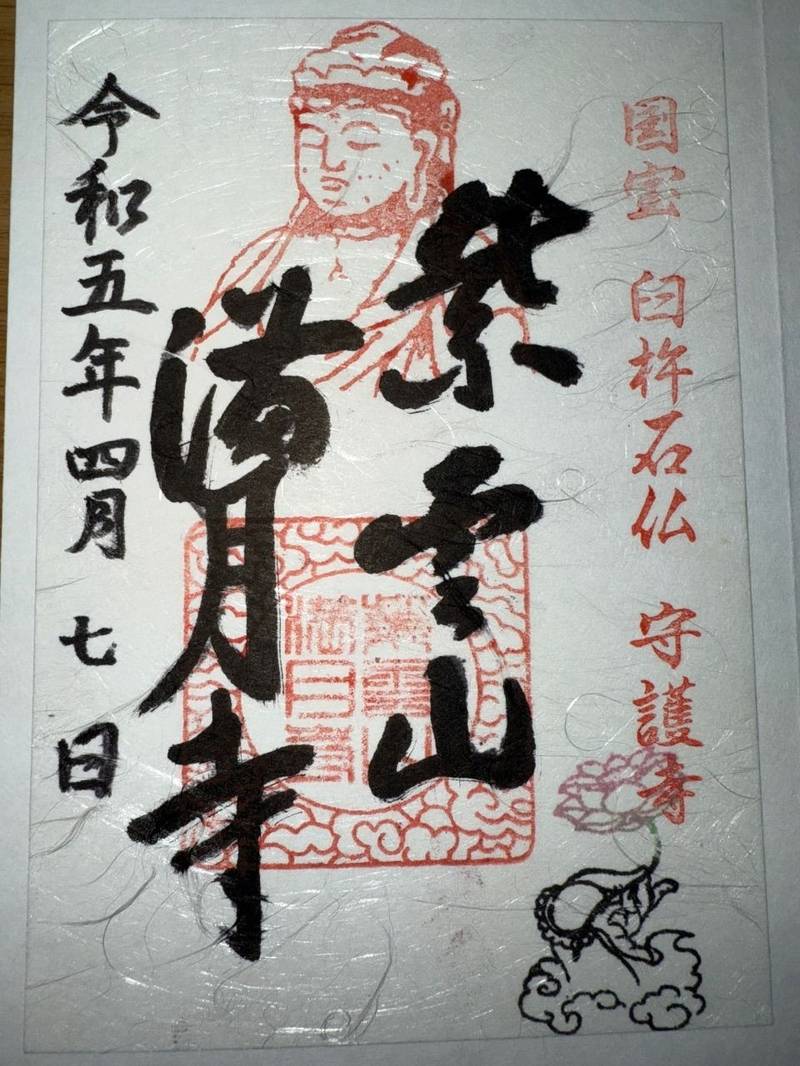 国宝 臼杵石仏 守護寺
紫雲山
満月寺
紫雲山
満月寺
令和五年四月七日